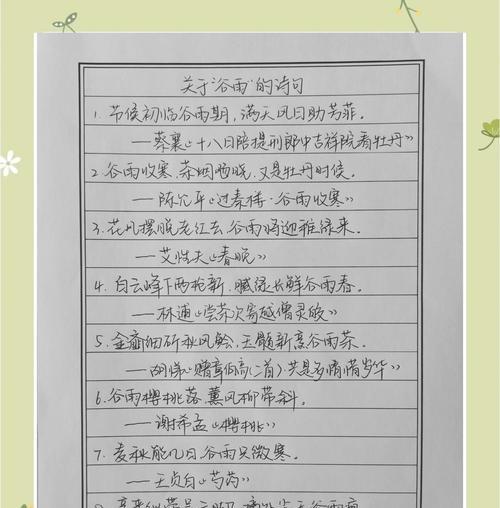 关于“谷雨”的诗句
1. 节候初临谷雨期，满天风日助芳菲。
——蔡襄《十八日陪提刑郎中吉祥院看牡丹》
2. 谷雨收寒，茶烟飏晓，又是牡丹时候。
——陈允平《过秦楼·谷雨收寒》
3. 花儿摆脱老红去，谷雨将迎雅绿来。
——艾性夫《春晚》
4. 白云峰下两枪新，腻绿长鲜谷雨春。
——林逋《尝茶次寄越僧灵皎》
5. 金齑细斫秋风鲙，玉髓新烹谷雨茶。
——胡悌《赠章伯高（二首）共是多情惜岁华》
6. 谷雨樱桃落，薰风柳带斜。
——谢希孟《樱桃》
7. 麦秋能几日，谷雨只微寒。
——王贞白《芍药》